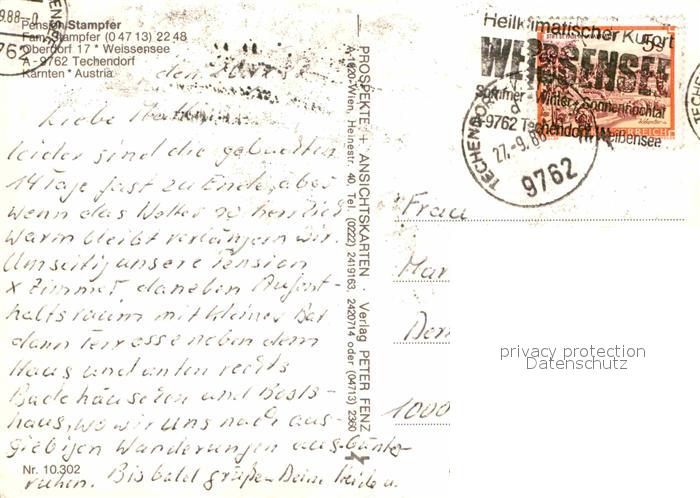 Pension Stampfer
Fam. Stampfer (0 47 13) 22 48
Oberdorf 17 * Weissensee
A - 9762 Techendorf
Kärnten * Austria
9.88 - 0
9762
den
Liebe
leider sind die gebuchten
14 Tage fast zu Ende, aber
wenn das Wetter so herrlich
warm bleibt verlängern wir.
Umseitig unsere Pension
x Zimmer, daneben Aufent-
haltsraum mit kleiner Bar
dann Terrasse neben dem
Haus und unten rechts
Badehäuschen und Boots-
haus, wo wir uns nach aus-
giebigen Wanderungen
ruhen. Bis bald grüßen Deine u.
Nr. 10.302
PROSPEKTE + ANSICHTSKARTEN · Verlag PETER FENZ
A-1020-Wien, Heinestr. 40, Tel. (0222) 2419163, 2420714 oder (04713) 2360
Heilklimatischer Kurort
WEISSENSEE
Sommer - Winter - Sonnenhochtal
A-9762 Techendorf/Weißensee
5S
TECHENDORF
27.-9.88
9762
Frau
Mar
1000
privacy protection
Datenschutz